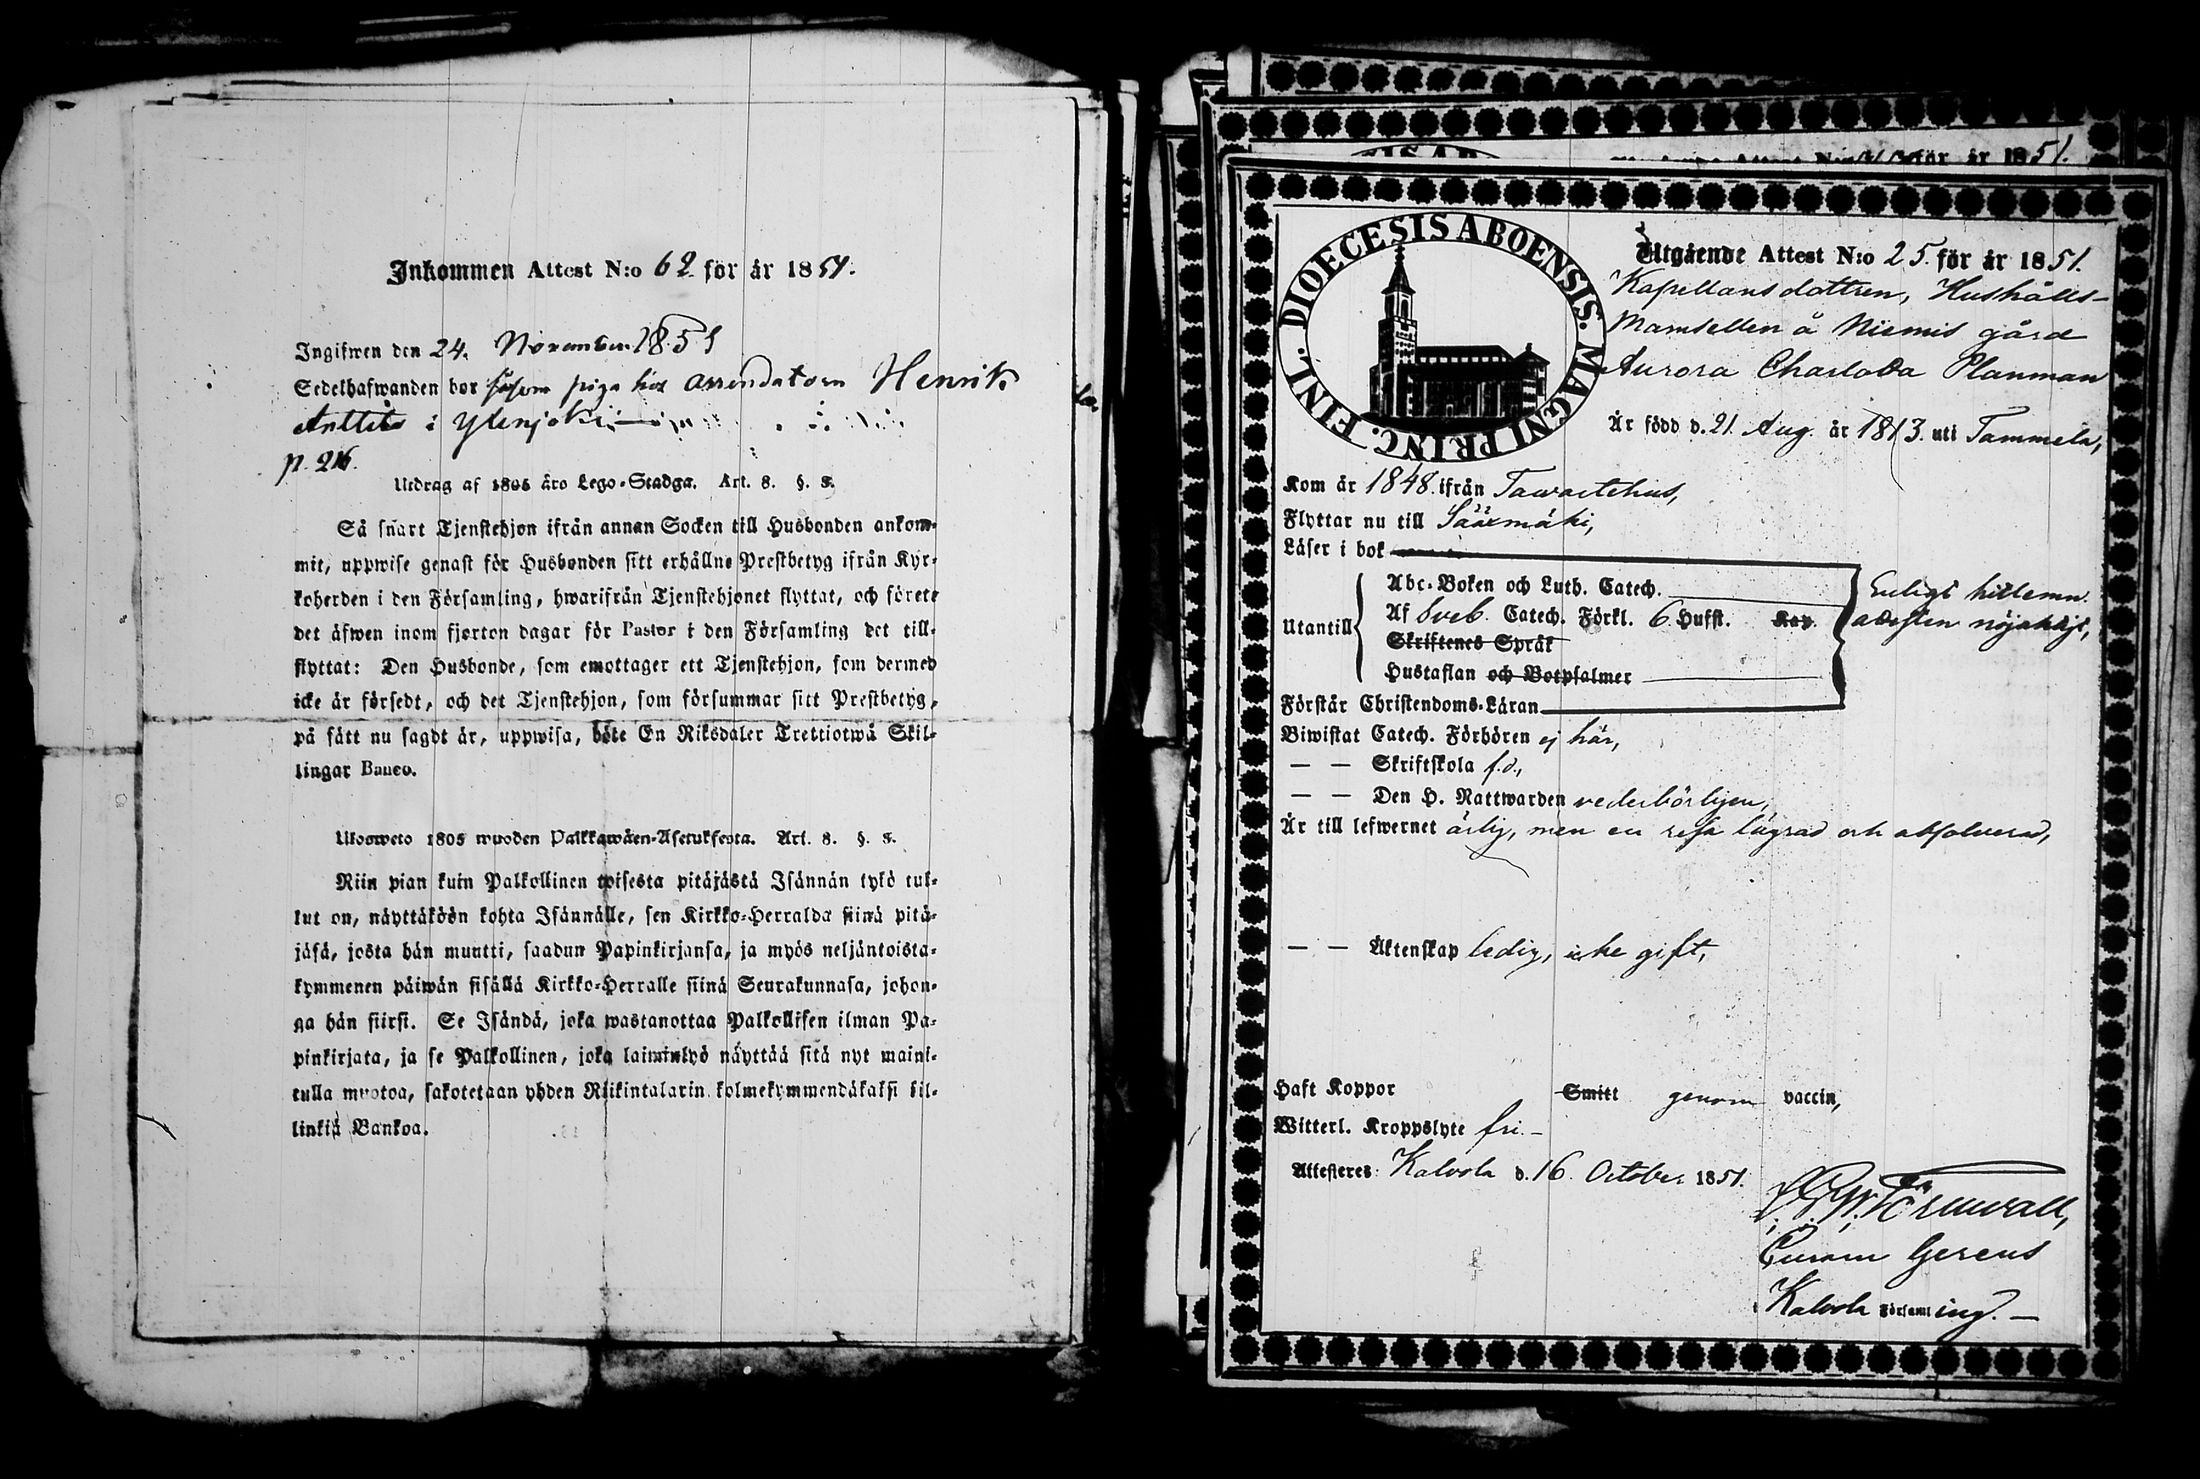 Inkommen Attest N:o 62. för år 1851.
Ingifwen den 24. November 1851
Sedelhafwanden bor såsom piga hos arrendatorn Henrik
Anttila i Ylenjoki
p. 216.
Utdrag af 1805 års Lego-Stadga. Art. 8. §. 8.
Så snart Tjenstehjon ifrån annan Socken till Husbonden ankom-
mit, uppwise genast för Husbonden sitt erhållne Prestbetyg ifrån Kyr-
koherden i den Församling, hwarifrån Tjenstehjonet flyttat, och förete
det äfwen inom fjorton dagar för Pastor i den Församling det till-
flyttat: Den Husbonde, som emottager ett Tjenstehjon, som dermed
icke är försedt, och det Tjenstehjon, som försummar sitt Prestbetyg,
på sätt nu sagdt är, uppwisa, böte En Riksdaler Trettiotwå Skil-
lingar Banco.
Ulosweto 1805 wuoden Palkkawäen-Asetuksesta. Art. 8. §. 8.
Niin pian kuin Palkollinen toisesta pitäjästä Isännän tykö tul-
lut on, näyttäköön kohta Isännälle, sen Kirkko-Herralda siinä pitä-
jäsä, josta hän muutti, saadun Papinkirjansa, ja myös neljäntoista-
kymmenen päiwän sisällä Kirkko-Herralle siinä Seurakunnasa, johon-
ga hän siirsi. Se Isändä, joka wastanottaa Palkollisen ilman Pa-
pinkirjata, ja se Palkollinen, joka laiminlyö näyttää sitä nyt maini-
tulla muotoa, sakotetaan yhden Riikintalarin kolmekymmendäkaksi kil-
linkiä Bankoa.
för år 1851.
DIOECESIS ABOENSIS. MAGNI PRINC. FINL.
Utgående Attest N:o 25. för år 1851.
Kapellansdottren, Hushålls-
Mamsellen å Niemis gård
Aurora Charlotta Planman
Är född d. 21. Aug. år 1813. uti Tammela,
Kom år 1848. ifrån Tawastehus,
Flyttar nu till Säärmäki,
Läser i bok
Utantill
Abc-Boken och Luth. Catech.
Af Sveb. Catech. Förkl. 6 Hufst. Kap.
Skriftenes Språk
Hustaflan och Botpsalmer
Enligt hitlemn.
attesten nöjaktigt,
Förstår Christendoms-Läran
Biwistat Catech. Förhören ej här,
— — Skriftskola f.d.,
— — Den H. Nattwarden vederbörligen,
Är till lefwernet ärlig, men en resa lägrad och absolverad,
— — Äktenskap ledig, icke gift,
Haft Koppor Smitt genom vaccin,
Witterl. Kroppslyte fri. —
Attesteres: Kalvola d. 16. October 1851.
Törnwall,
Curam Gerens
Kalvola Församling. —